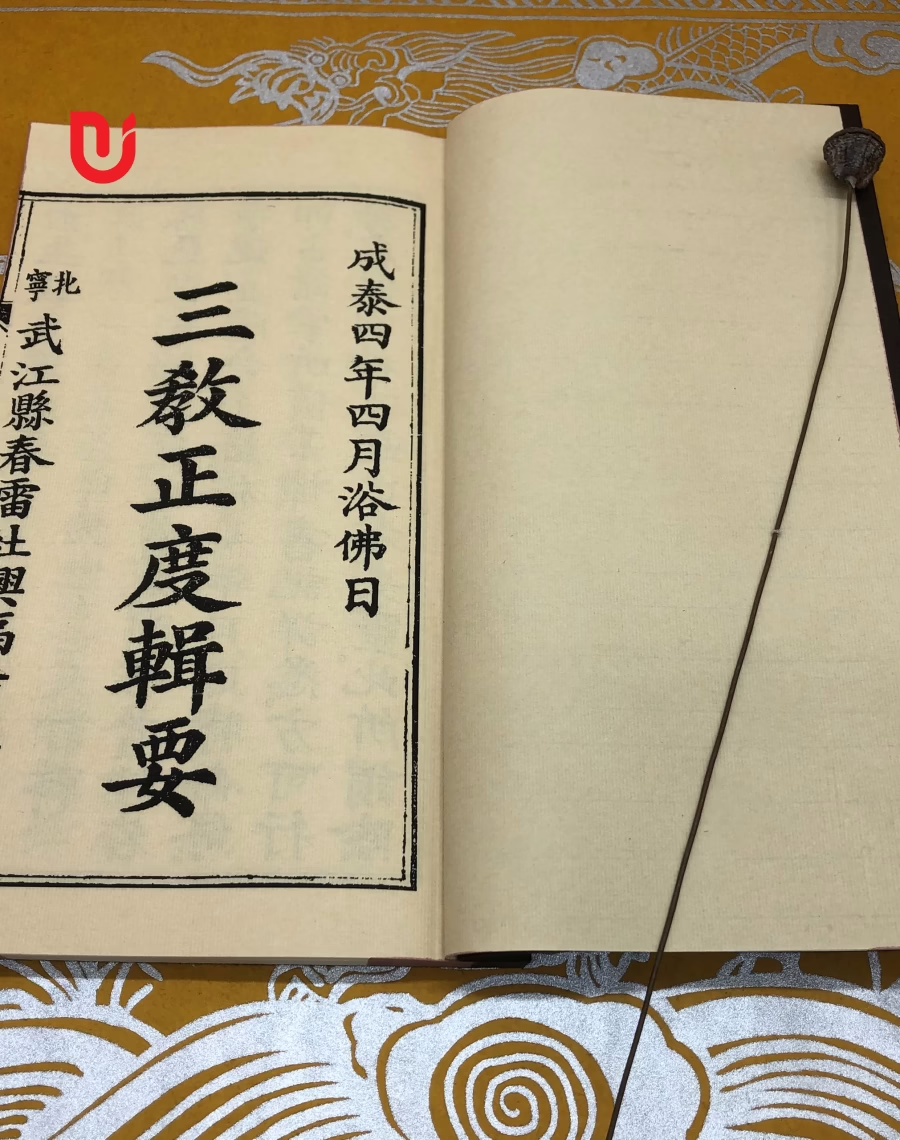 成泰四年四月浴佛日
三敎正度輯要
北寧
武江縣春雷社興福